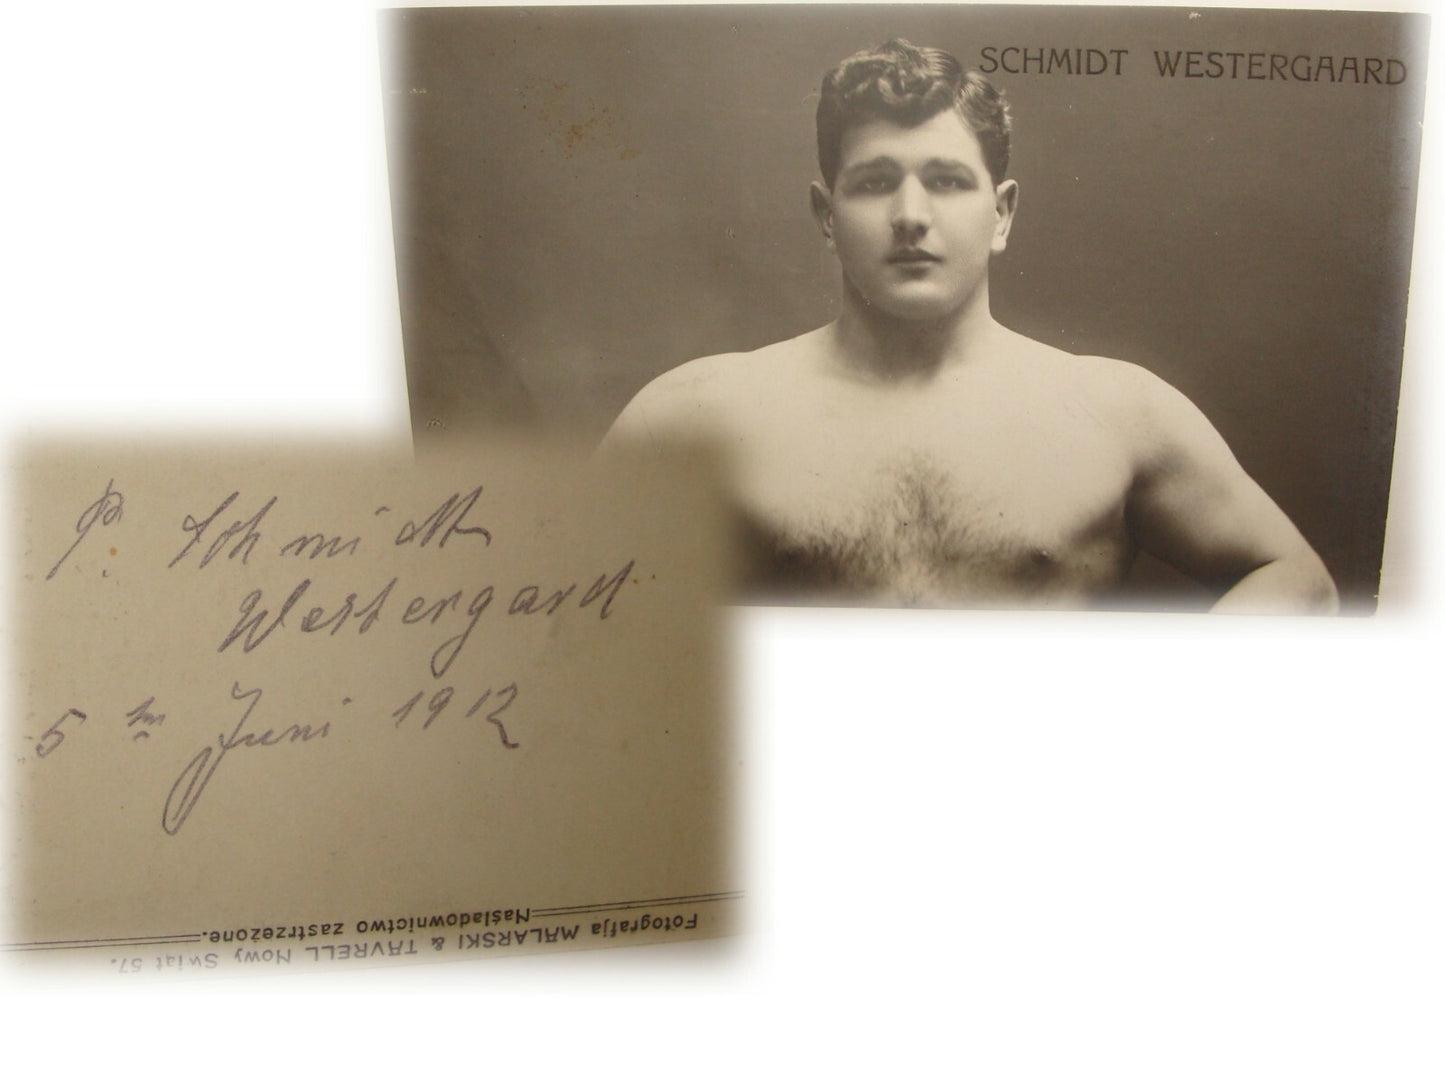 SCHMIDT WESTERGAARD
P. Schmidt
Westergard
5 tm Juni 1912
Fotografja MALARSKI & TAVRELL Nowy Świat 57.
Naśladownictwo zastrzeżone.